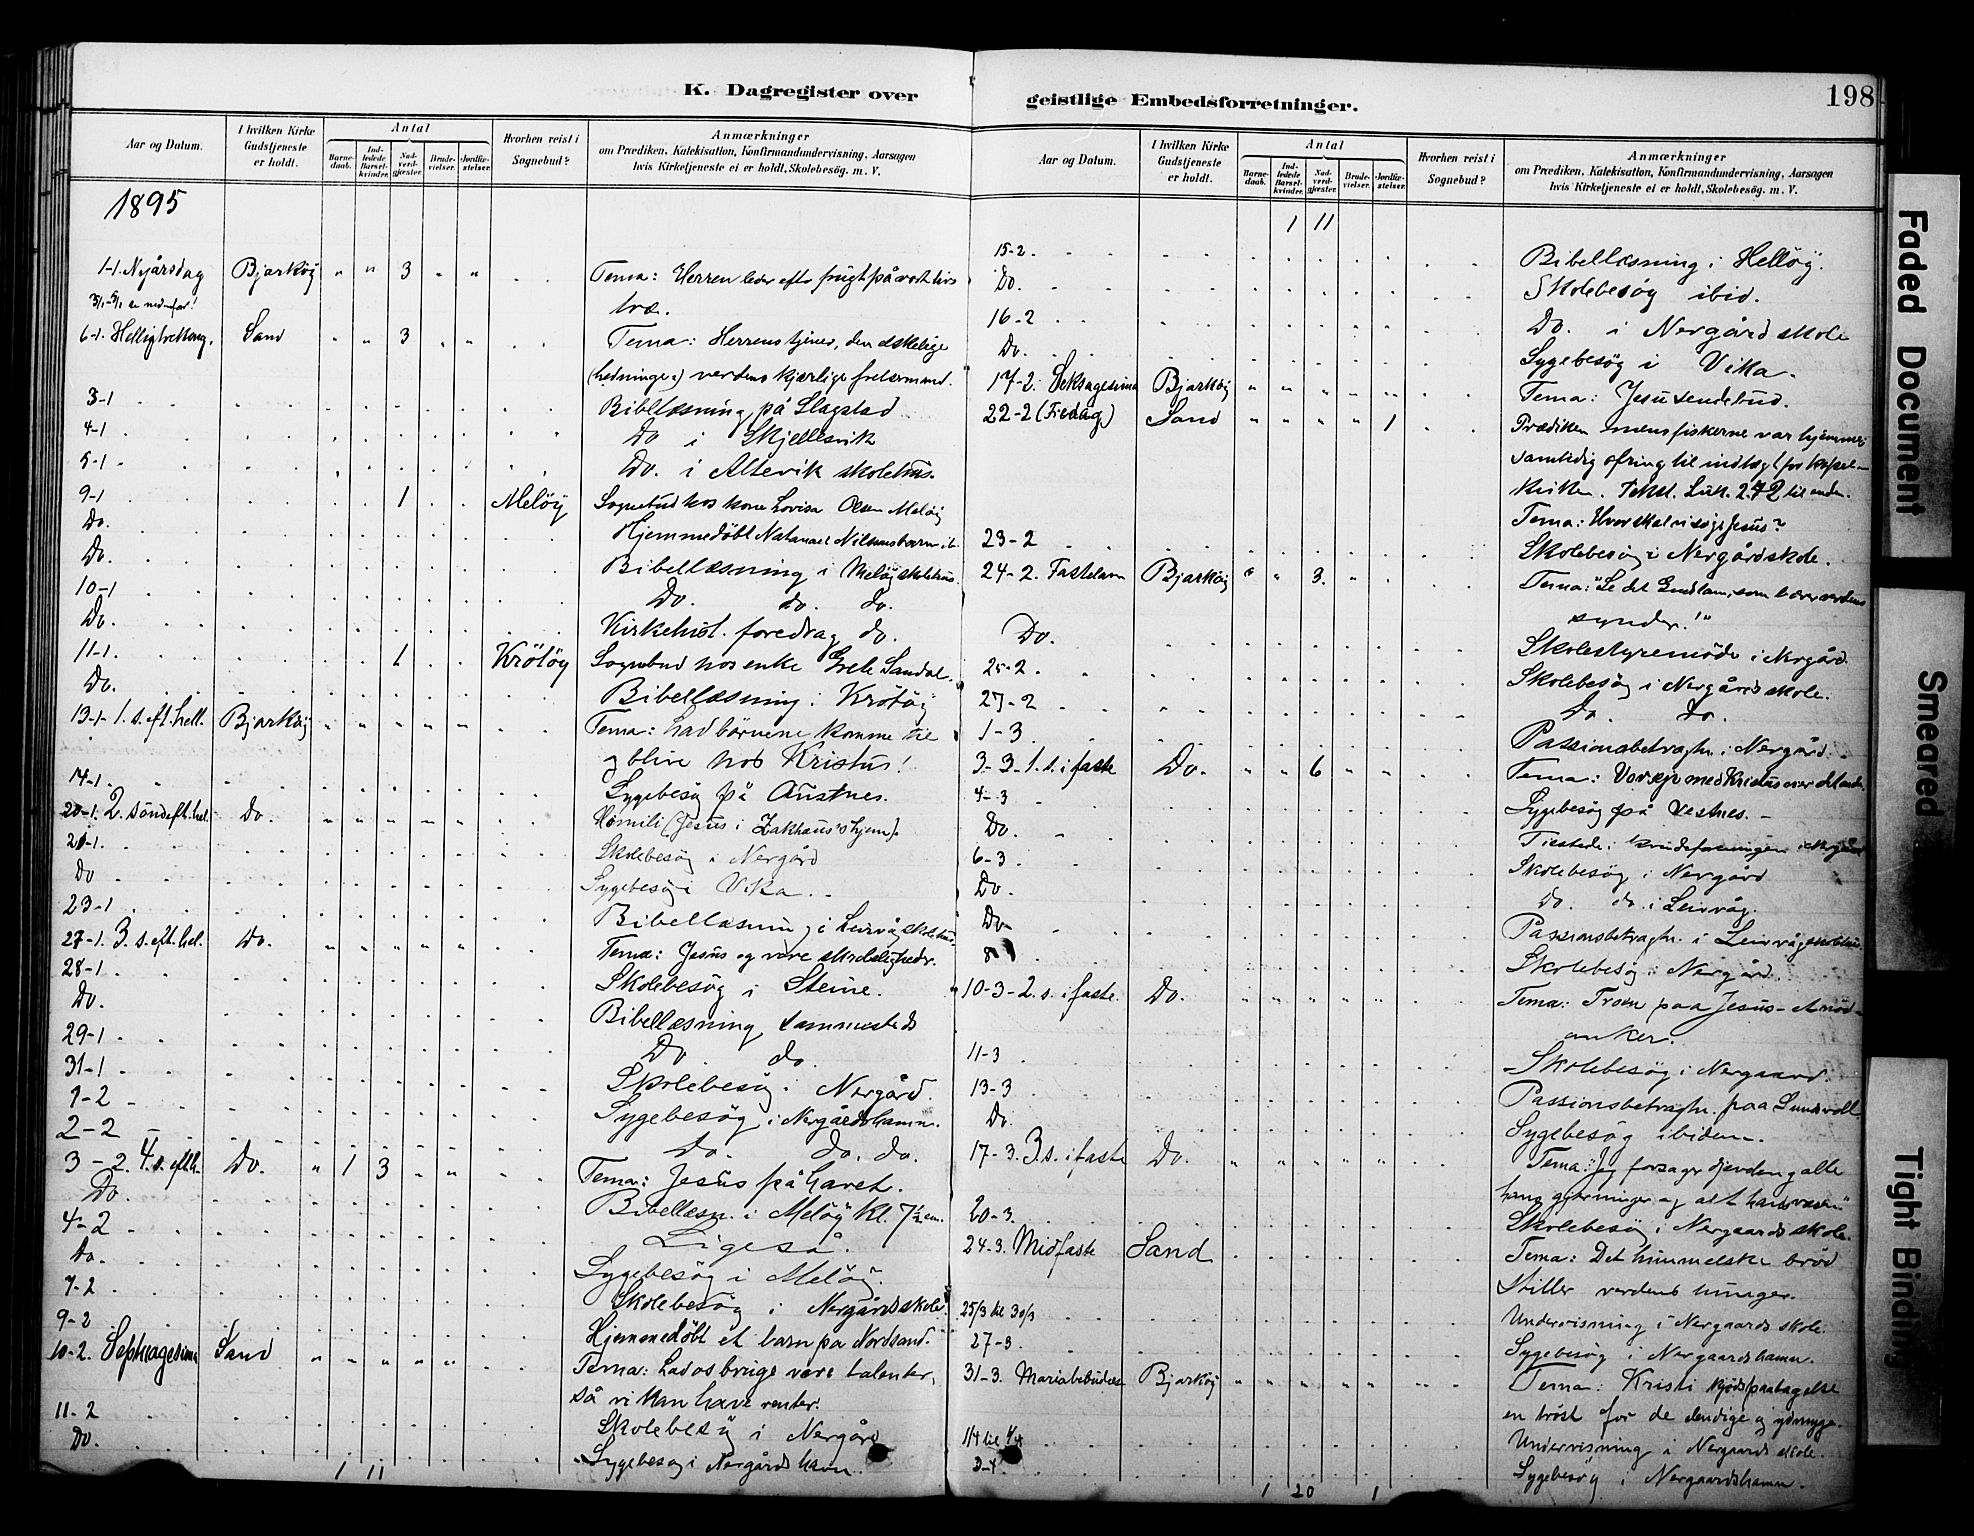 K. Dagregister over
Aar og Datum.
I hvilken Kirke Gudstjeneste er holdt.
Antal
Barne-daab.
Ind-ledede Barsel-kvinder.
Nad-verd-gjæster.
Brude-vielser.
Jordfæ-stelser.
Hvorhen reist i Sognebud?
Anmærkninger
om Prædiken, Katekisation, Konfirmandundervisning, Aarsagen
hvis Kirketjeneste ei er holdt, Skolebesög. m. V.
1895
1-1. Nyårsdag Bjarköy " " 3 " " Tema: Herren leder efter frugt på vort livs
træ.
6-1. Sand " " 3 Tema: Herrens tjener, den elskelige
verdens kjærlige frelsermand.
3-1 Bibellæsning på Slagstad
4-1 Do i Skjellesvik
5-1 Do. i Altevik skolehus.
9-1 1 Melöy Sognebud hos kone Lovisa Olsen Melöy
Do. Hjemmedöbt Natanael Nilsens barn ib.
Do. Bibellæsning i Melöy skolehus.
10-1 Do. do. do.
Do. Kirkehist. foredrag do.
11-1. 1 Krötöy Sognebud hos enke Grete Sandal.
Do. Bibellæsning i Krötöy
13-1- 1. s. eft. hell. Bjarköy " " " " " Tema: Lad börnene komme til
og blive hos Kristus!
14-1. Sygebesög på Austnes.
20-1. 2. sönd eft. hel. Do. " " " " " Homili (Jesus i Zakhæus's hjem).
21-1. Skolebesög i Nergård
Do Sygebesög i Vika.
23-1 Bibellæsning i Leirvåg skolehus.
27-1. 3. s. eft. hel. Do. " " " " " Tema: Jesus og vore skrøbeligheder.
28-1 Skolebesög i Steine.
Do. Bibellæsning sammesteds
29-1 Do. do.
31-1 Skolebesög i Nergård.
1-2 Sygebesög i Nergårdshamn.
2-2 Do. do. do.
3-2. 4. s. eft h. Do. " 1 3 " " Tema: Jesus på havet.
Do. Bibellæsn. i Melöy kl. 7½ em.
4-2 Ligeså.
Do. Sygebesög i Melöy.
7-2 Skolebesög i Nergårdskole.
9-2 Hjemmedöbt et barn på Nordsand.
10-2. Septuagesima Sand " " " " " Tema: Lad os bruge vore talenter,
så vi kan have renter.
11-2 Skolebesög i Nergård
Do. Sygebesög i Nergårdshavn.
1 11
geistlige Embedsforretninger.
198
Aar og Datum.
I hvilken Kirke Gudstjeneste er holdt.
Antal
Barne-daab.
Ind-ledede Barsel-kvinder.
Nad-verd-gjæster.
Brude-vielser.
Jordfæ-stelser.
Hvorhen reist i Sognebud?
Anmærkninger
om Prædiken, Katekisation, Konfirmandundervisning, Aarsagen
hvis Kirketjeneste ei er holdt, Skolebesög. m. V.
1 11
15-2 Bibellæsning i Hellöy.
Do. Skolebesög ibid.
16-2 Do. i Nergårdskole
Do. Sygebesög i Vika.
17-2. Seksagesima Bjarköy " " " " " Tema: Jesu sendebud.
22-2 (Fredag) Sand " " " " 1 Prædiken mens fiskerne var hjemme;
samtidig ofring til indtægt for kapel-
kirken. Tekst. Luk. 2.42 til enden.
Tema: Hvor skal vi söge Jesus?
23-2 Skolebesög i Nergårdskole.
24-2. Fastelavn Bjarköy " " 3. " " Tema: "Se det Guds lam, som bærer verdens
synder!"
Do. Skolestyremöde i Nergård.
25-2. Skolebesög i Nergårdskole.
27-2 Do. do.
1-3 Passionsbetragtn. i Nergård.
3-3. 1. s. i faste Do. " " 6 " "
4-3 Sygebesög på Vestnes.
Do. Tilstede i kvindeforeningen i Nergård
6-3 Skolebesög i Nergård
Do. Do. do. i Leirvåg.
Do- Passionsbetragtn. i Leirvåg skolehus
8 Skolebesög i Nergård.
10-3-2. s. i faste. Do. " " " " " Tema: Troen paa Jesus - et nöd-
anker.
11-3 Skolebesög i Nergaard.
13-3 Passionsbetragtn. paa Sundsvoll
Do. Sygebesög ibidem.
17-3. 3. s. i faste Do. " " " " " Tema: "Jeg forsager djævelen og alle
hans gjerninger og alt hans væsen"
20-3. Skolebesög i Nergaardsskole.
24-3. Midfaste Sand Tema: Det himmelske bröd
stiller verdens hunger.
25/3 til 30/3 Undervisning i Nergaardsskole.
27-3 Sygebesög i Nergaardshamn.
31-3. Mariæbebudelse Bjarköy " " " " " Tema: Kristi kjöds paatagelse
en tröst for de elendige og ydmyge.
1/4 til 4/4 Undervisning i Nergaards skole.
3-4. Sygebesög i Nergaardshamn.
1 20 1
Faded Document
Smeared
Tight Binding